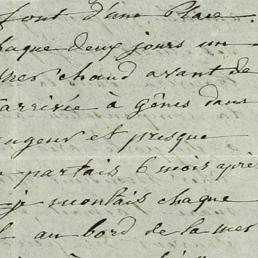 font d'une Place.
haque deux jours un
mer chaud avant de
arrivée à gênes dans
angeur et presque
partais 6 mois après
je montais chaque
au bord de la mer